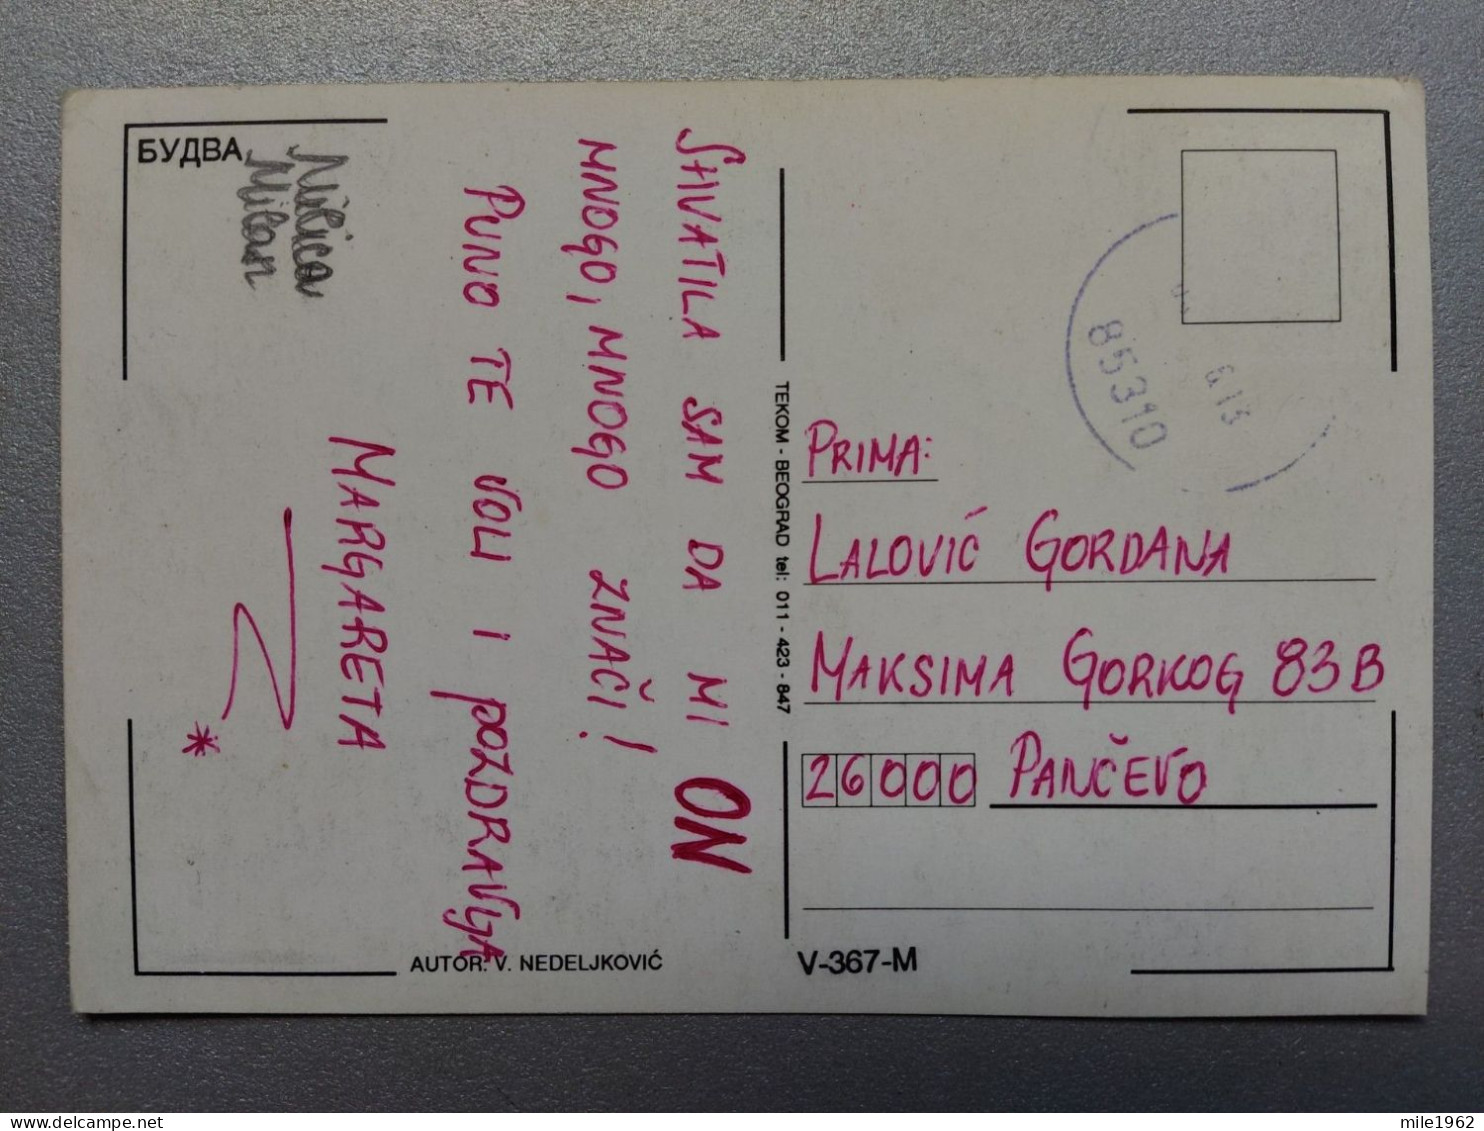 БУДВА
Milica
Milan
SHVATILA SAM DA MI ON
MNOGO, MNOGO ZNAČI!
PUNO TE VOLI I POZDRAVLJA
MARGARETA
*
AUTOR: V. NEDELJKOVIĆ
TEKOM - BEOGRAD tel: 011 - 423 - 847
V-367-M
85310
PRIMA:
LALOVIĆ GORDANA
MAKSIMA GORKOG 83B
26000 PANČEVO
mile1962